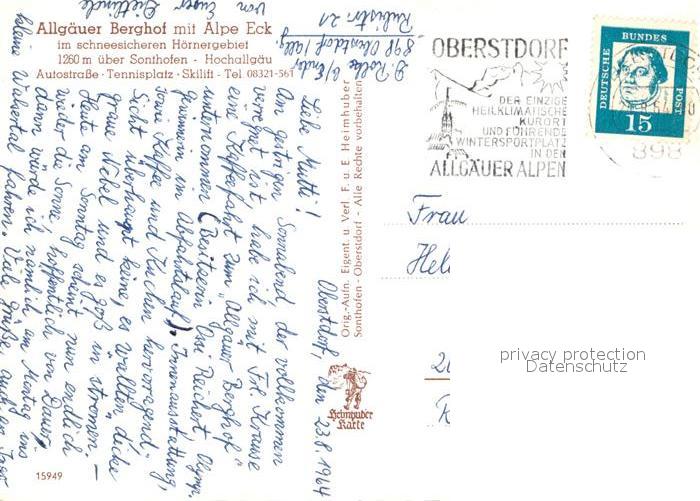 Allgäuer Berghof mit Alpe Eck
im schneesicheren Hörnergebiet
1260 m über Sonthofen - Hochallgäu
Autostraße · Tennisplatz · Skilift - Tel 08321-561
von Eurer
Rubistr. 21
898 Oberstdorf/Allg.
Oberstdorf, den 23.8.1964
Liebe Mutti!
Am gestrigen Sonnabend, der vollkommen
verregnet ist, habe ich mit Fr. Krause
eine Kaffeefahrt zum "Allgäuer Berghof"
unternommen (Besitzerin Ossi Reichert, Olymp.
im Abfahrtslauf). Innenausstattung,
sowie Kaffee und Kuchen hervorragend.
Sicht überhaupt keine, es wallten dicke
graue Nebel und es goß in Strömen. -
Heut am Sonntag scheint nun endlich
wieder die Sonne, hoffentlich von Dauer,
dann würde ich nämlich am Montag ins
kleine Walsertal fahren. Viele Grüße, auch an
15949
Orig.-Aufn. Eigent. u. Verl F. u E Heimhuber
Sonthofen - Oberstdorf - Alle Rechte vorbehalten
Heimhuber
Karte
OBERSTDORF
DER EINZIGE
HEILKLIMATISCHE
KURORT
UND FÜHRENDE
WINTERSPORTPLATZ
IN DEN
ALLGÄUER ALPEN
DEUTSCHE
BUNDES
POST
15
898
Frau
Hel
privacy protection
Datenschutz